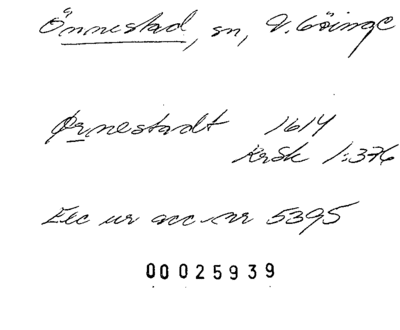 Önnestad, sn, V. Göinge
Ørnestadt 1614
KrSk 1:376
Exc ur acc-nr 5395
00 025939